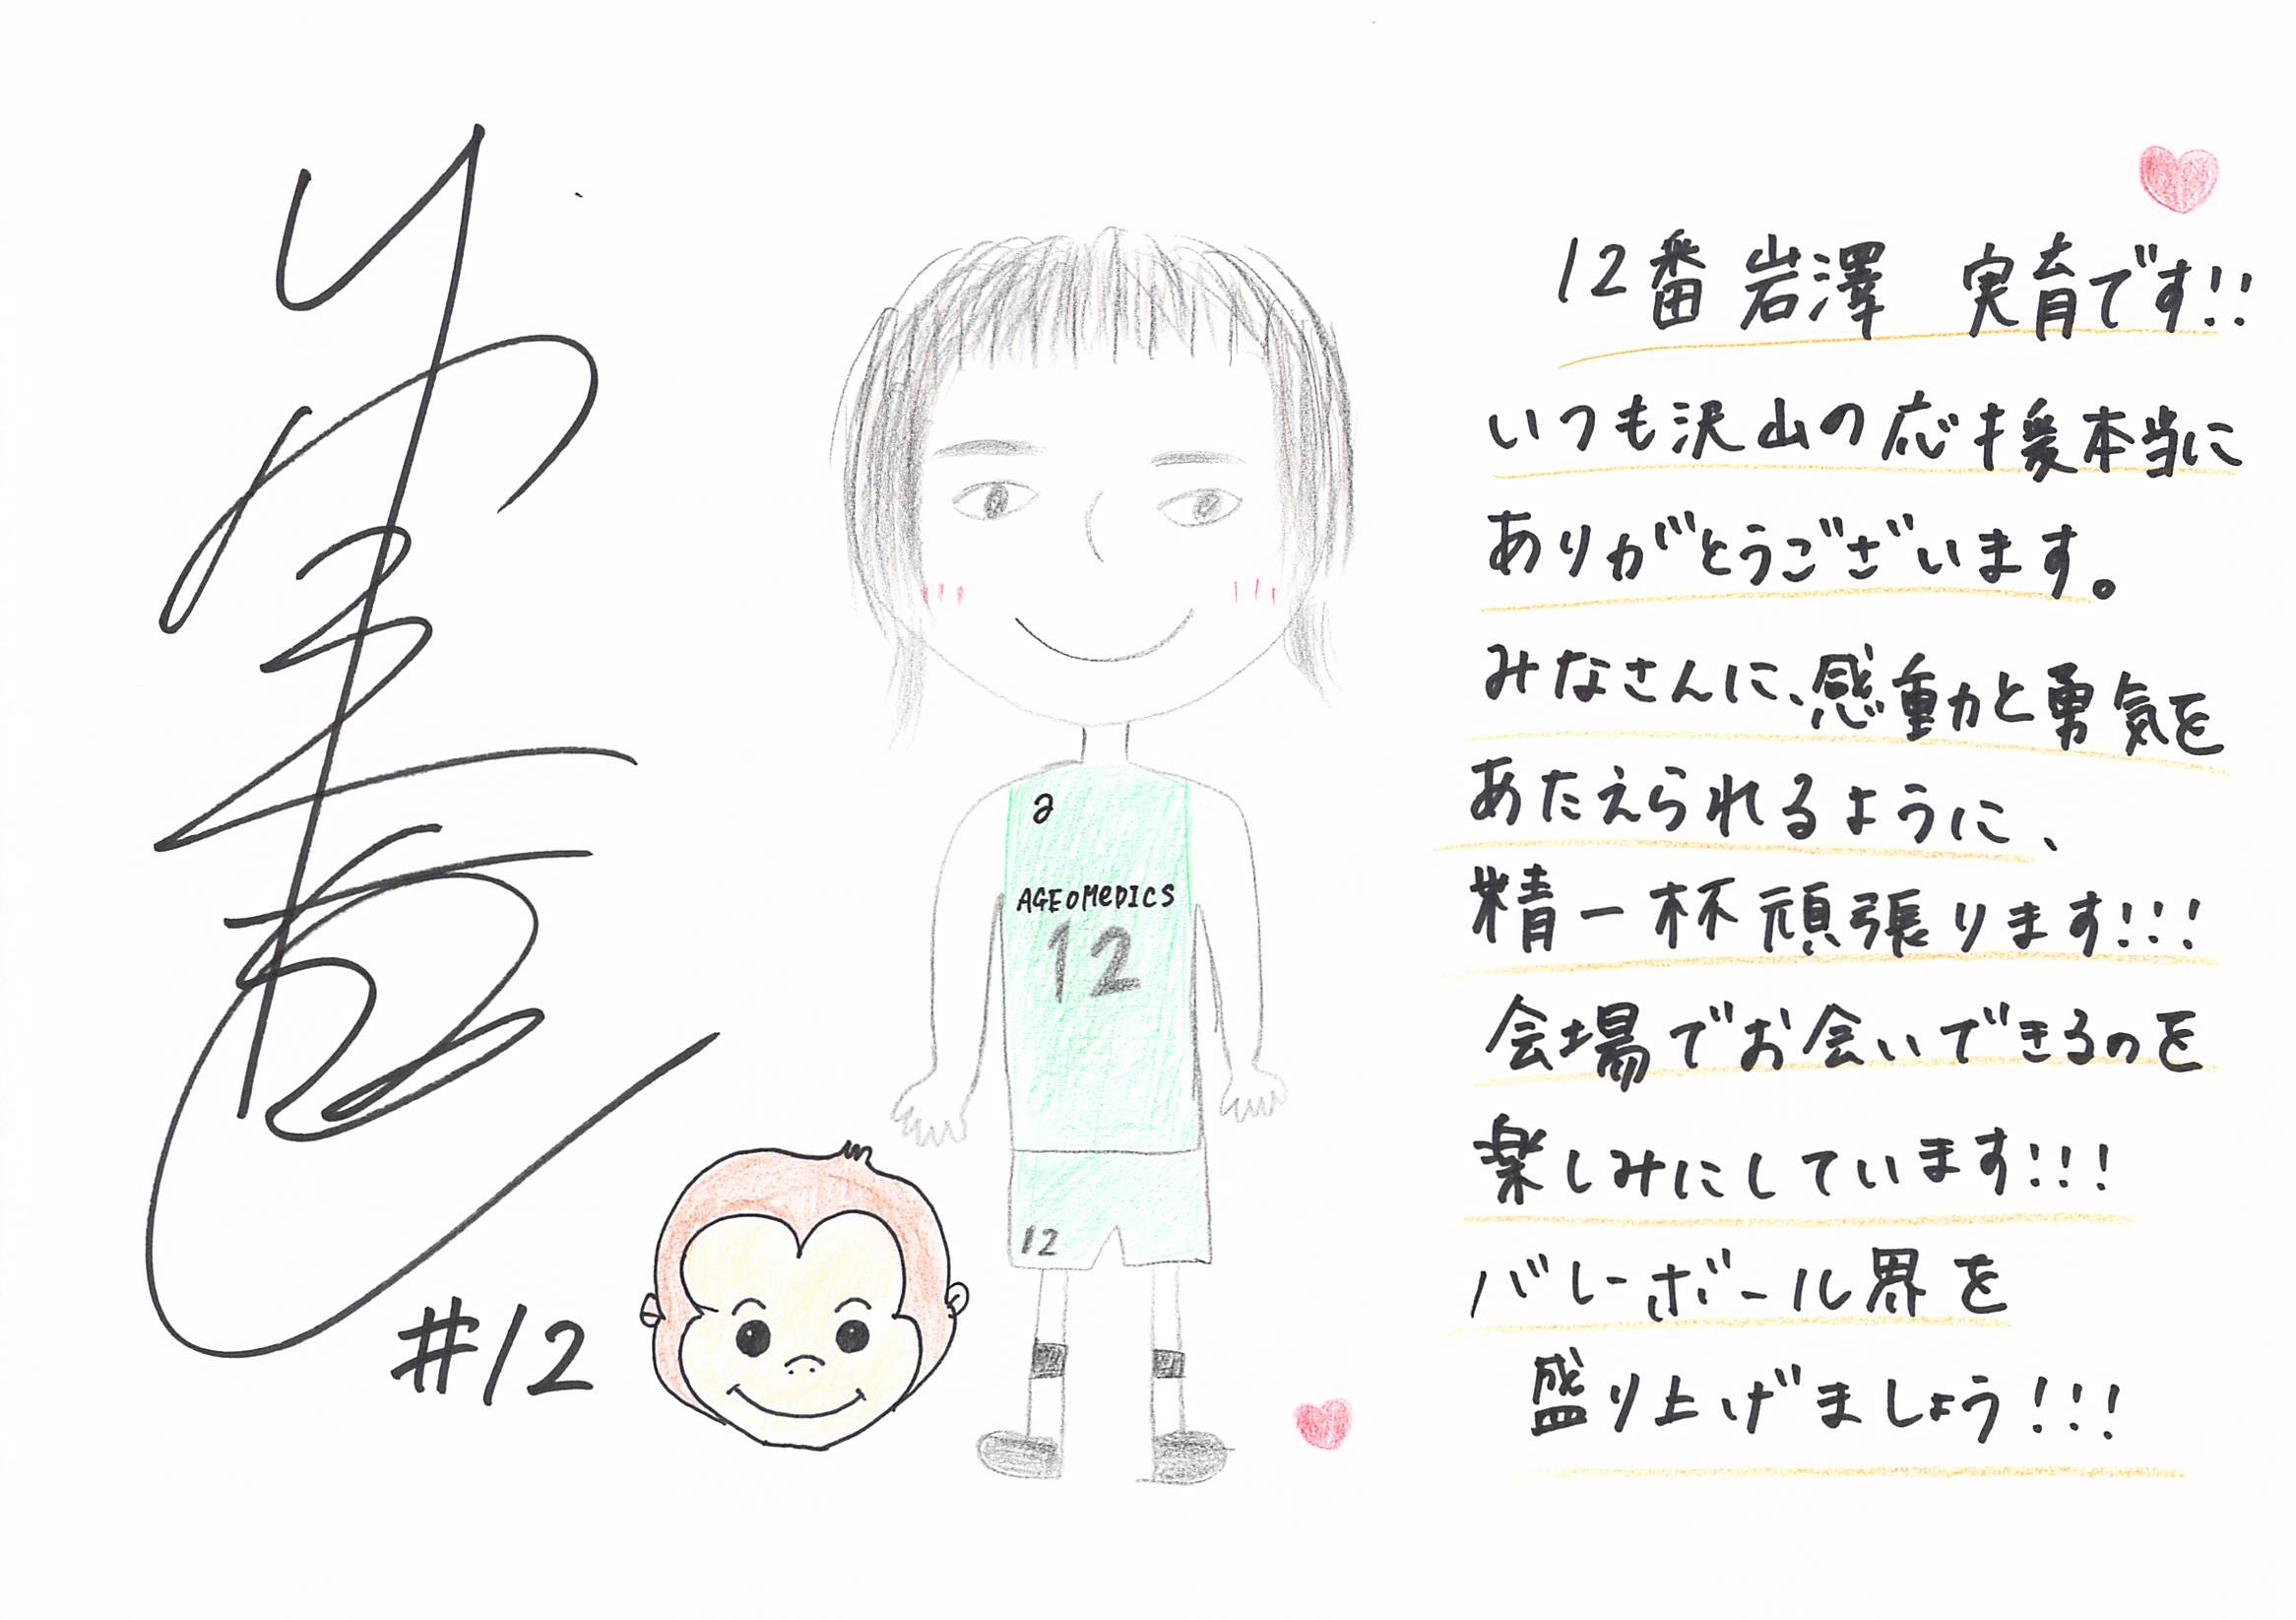 12番 岩澤 実育です!!
いつも沢山の応援本当に
ありがとうございます。
みなさんに、感動と勇気を
あたえられるように、
精一杯頑張ります!!!
会場でお会いできるのを
楽しみにしています!!!
バレーボール界を
盛り上げましょう!!!
a
AGEOMEDICS
12
12
#12